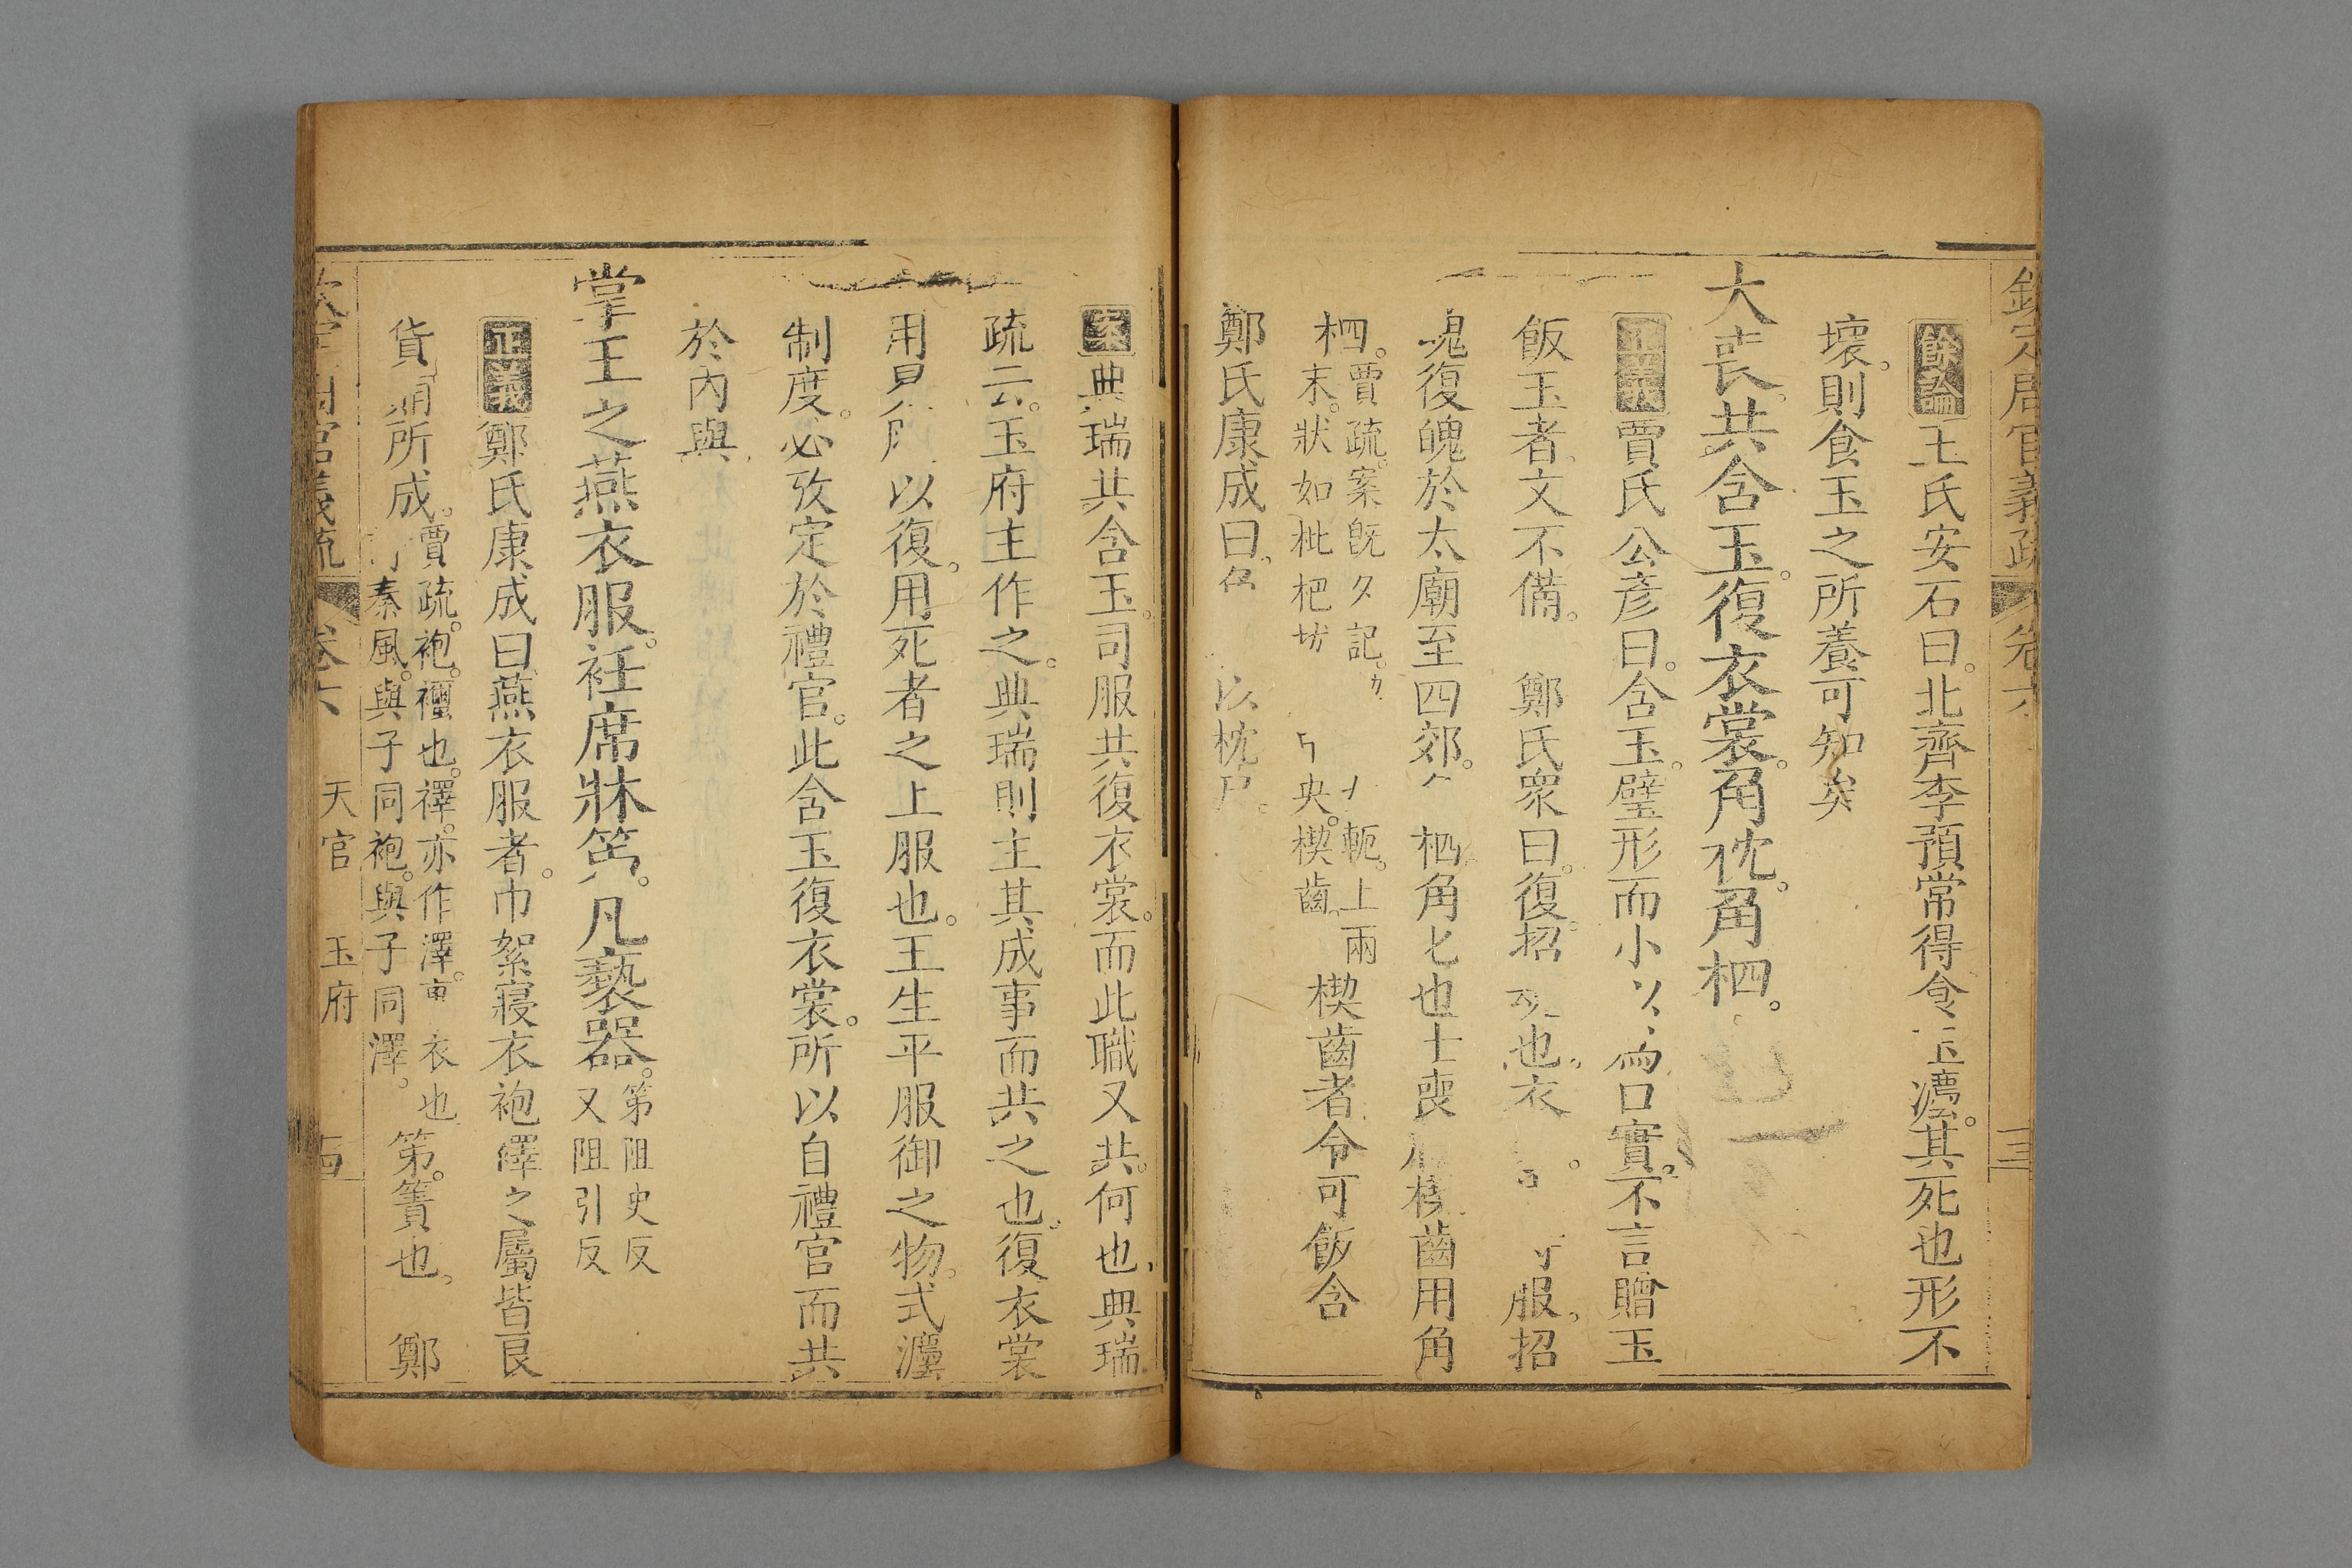 欽定周官義疏 卷六
餘論 王氏安石曰。北齊李預常得食玉灋。其死也形不
壞。則食玉之所養可知矣
大喪。共含玉。復衣裳。角枕。角柶。
正義 賈氏公彥曰。含玉。璧形而小以為口實。不言贈玉
飯玉者。文不備。 鄭氏衆曰。復。招 也。衣 服。招
魂復魄於太廟至四郊。 柶角匕也士喪 楔齒用角
柶。賈疏。案旣夕記。 軛。上兩
末。狀如枇杷坊 央。楔齒。 楔齒者令可飯含
鄭氏康成曰。 以枕尸。
案 典瑞共含玉。司服共復衣裳。而此職又共。何也。典瑞
疏云。玉府主作之。典瑞則主其成事而共之也。復衣裳
用 以復。用死者之上服也。王生平服御之物。式灋
制度。必攷定於禮官。此含玉復衣裳。所以自禮官而共
於內與
掌王之燕衣服。衽席牀笫。凡褻器。笫阻史反
又阻引反
正義 鄭氏康成曰燕衣服者。巾絮寢衣袍襗之屬皆良
貨 所成。賈疏。袍。襺也。襗。亦作澤。 衣也
秦風。與子同袍。與子同澤。 笫。簀也。 鄭
欽定周官義疏 卷六 天官 玉府